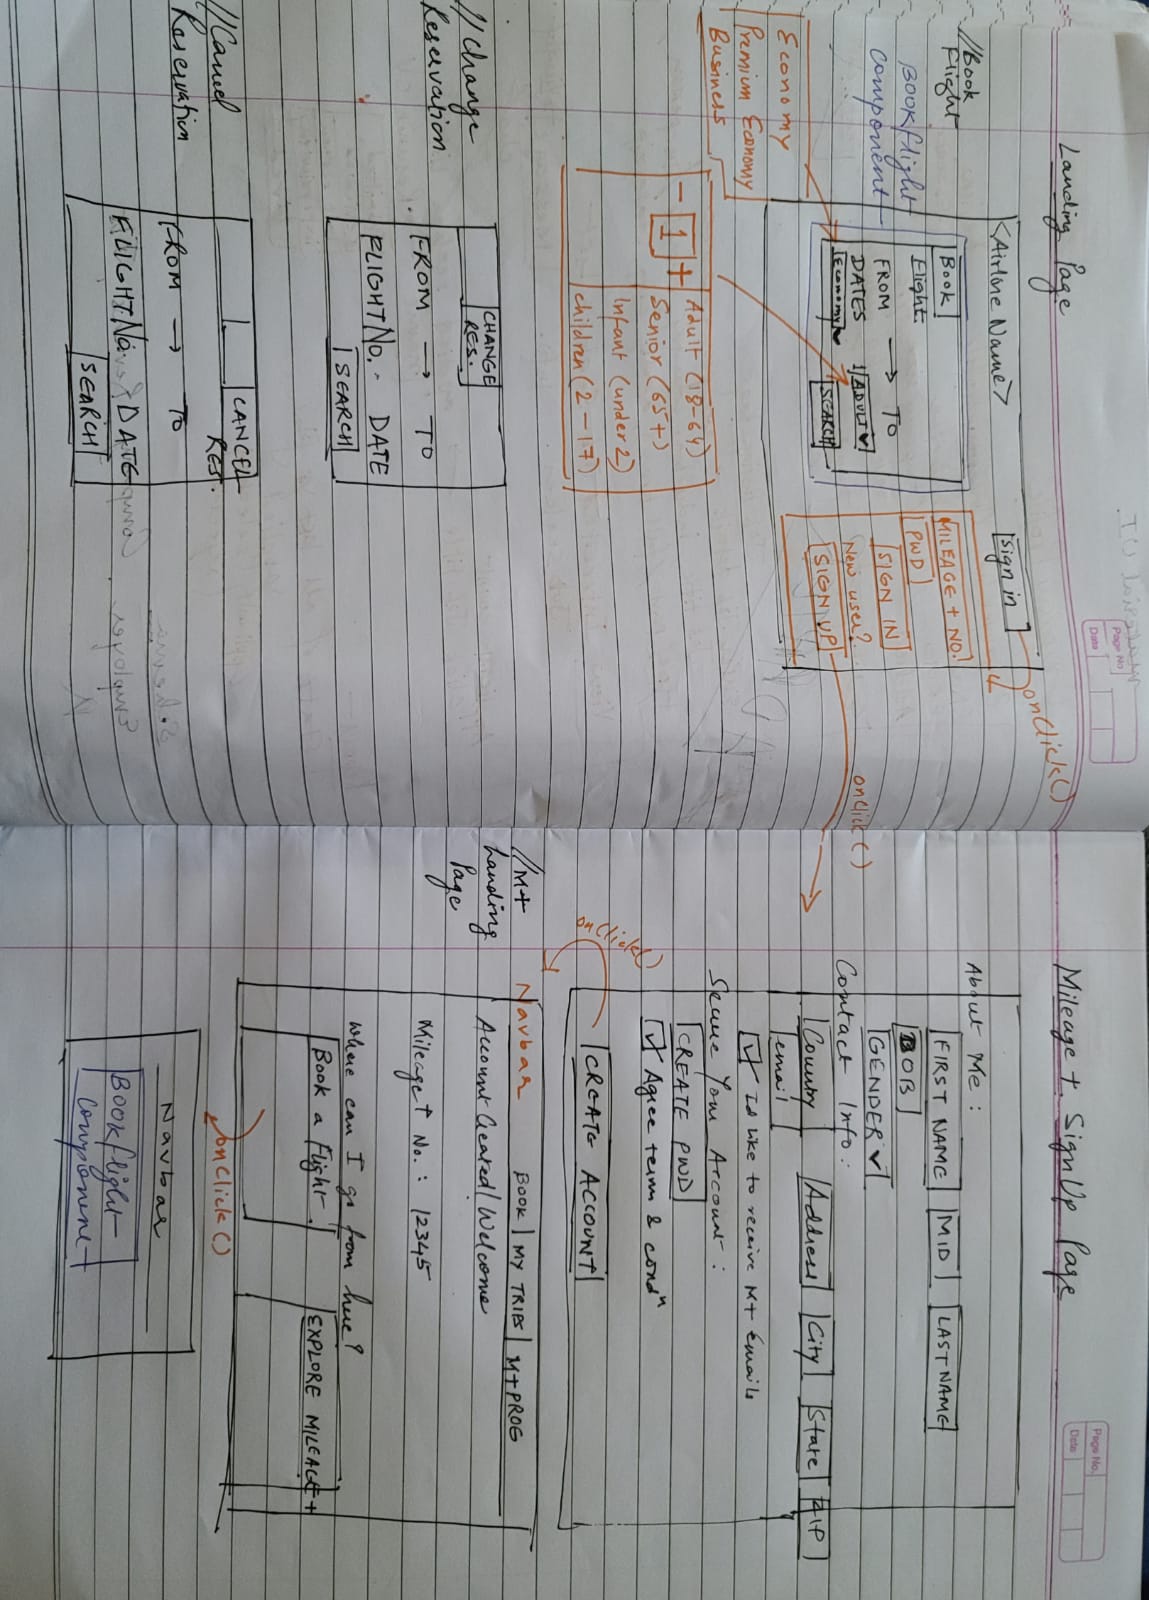 Landing Page
Page No.
Date
<Airline Name>
Sign in
onClick()
//Book
Flight
BOOKflight
component
Book
Flight
FROM → TO
DATES
1 ADULT
Economy
SEARCH
MILEAGE + NO.
PWD
SIGN IN
New user?
SIGN UP
onClick()
Economy
Premium Economy
Business
- 1 +
Adult (18-64)
Senior (65+)
Infant (under 2)
children (2-17)
//Change
Reservation
CHANGE
RES.
FROM → TO
FLIGHT No. - DATE
SEARCH
//Cancel
Reservation
CANCEL
RES.
FROM → TO
FLIGHT No. DATE
SEARCH
Mileage + SignUp Page
Page No.
Date
About Me :
FIRST NAME MID LASTNAME
DOB
GENDER
Contact Info :
Country Address City State ZIP
email
I'd like to receive M+ Emails
Secure Your Account :
CREATE PWD
Agree term & condn
CREATE ACCOUNT
onClick()
//M+
Landing
Page
Navbar BOOK | MY TRIPS | M+PROG
Account Created/Welcome
Mileage+ No. : 12345
Where can I go from here?
Book a Flight. EXPLORE MILEAGE+
onClick()
Navbar
BOOKflight
Component